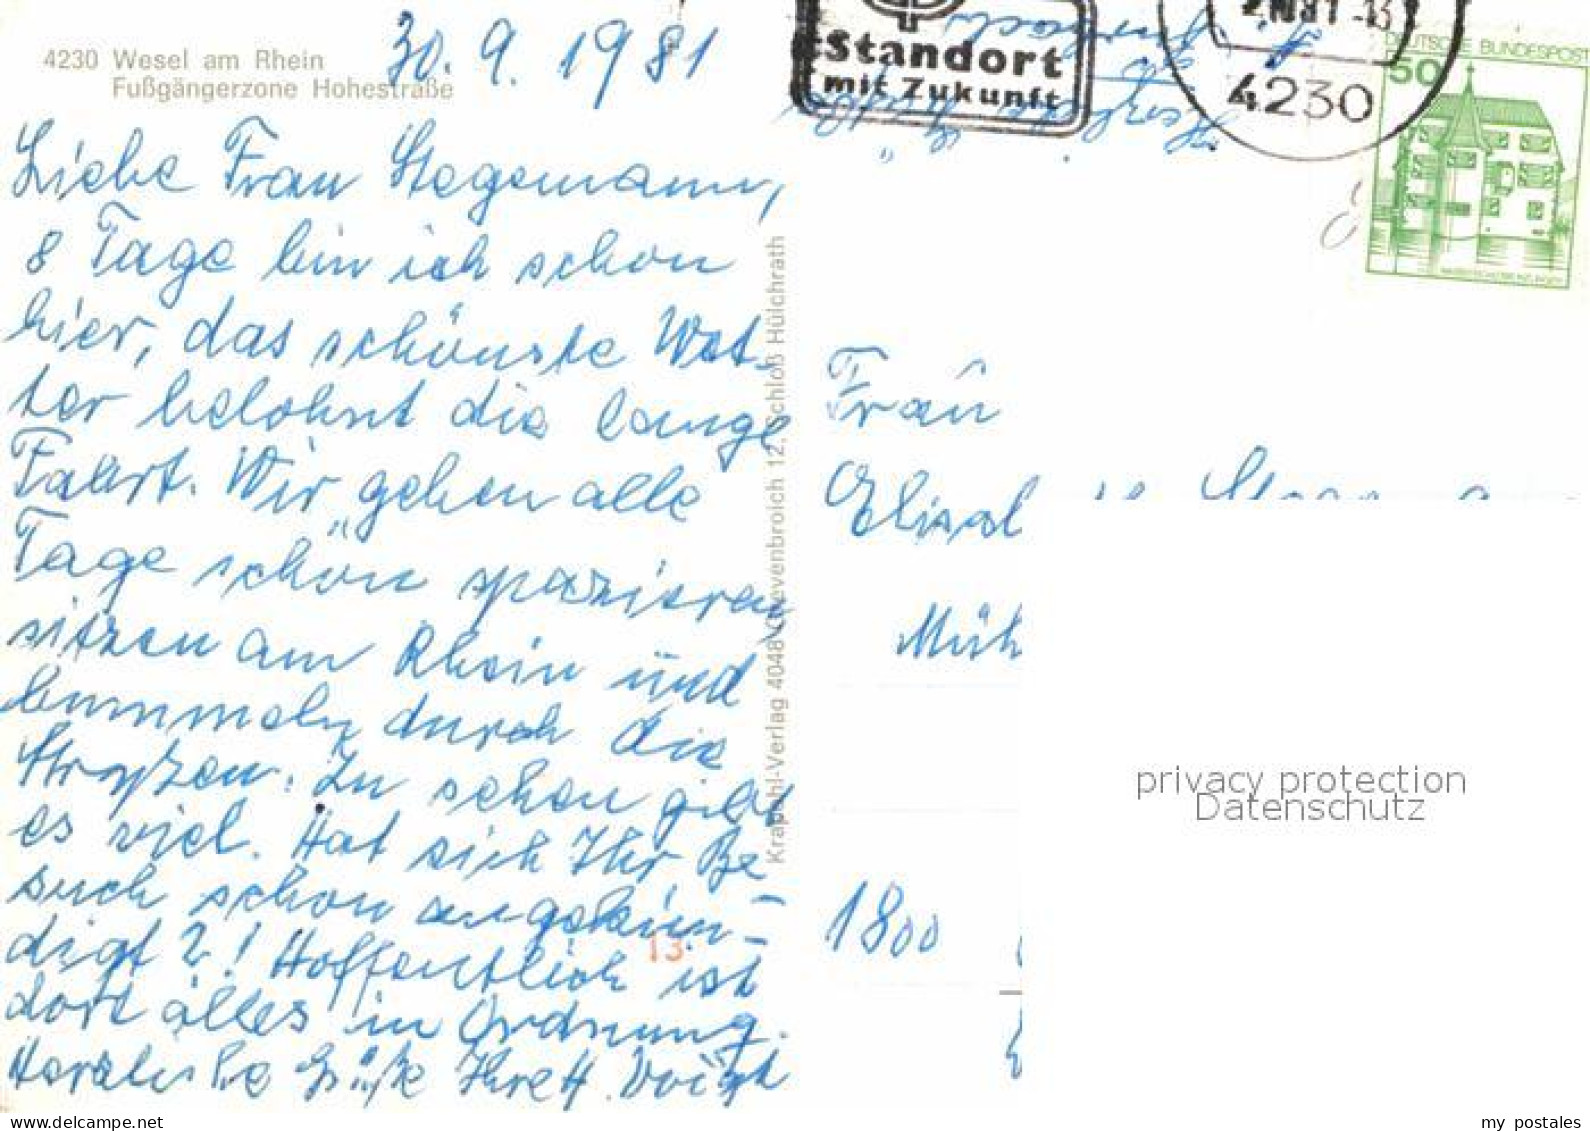 4230 Wesel am Rhein
Fußgängerzone Hohestraße
30.9.1981
Liebe Frau Stegemann,
8 Tage bin ich schon
hier, das schönste Wet-
ter belohnt die lange
Fahrt. Wir gehen alle
Tage schön spazieren
sitzen am Rhein und
bummeln durch die
Straßen. Zu sehen gibt
es viel. Hat sich Ihr Be-
such schon angekün-
digt?! Hoffentlich ist
dort alles in Ordnung.
Herzliche Grüße Ihre H. Voigt
13
Krapohl-Verlag 4048 Grevenbroich 12, Schloß Hülchrath
Standort
mit Zukunft
4230
Herzliche Grüße
DEUTSCHE BUNDESPOST
50
Frau
Elisab
Müh
1800
privacy protection
Datenschutz
my postales